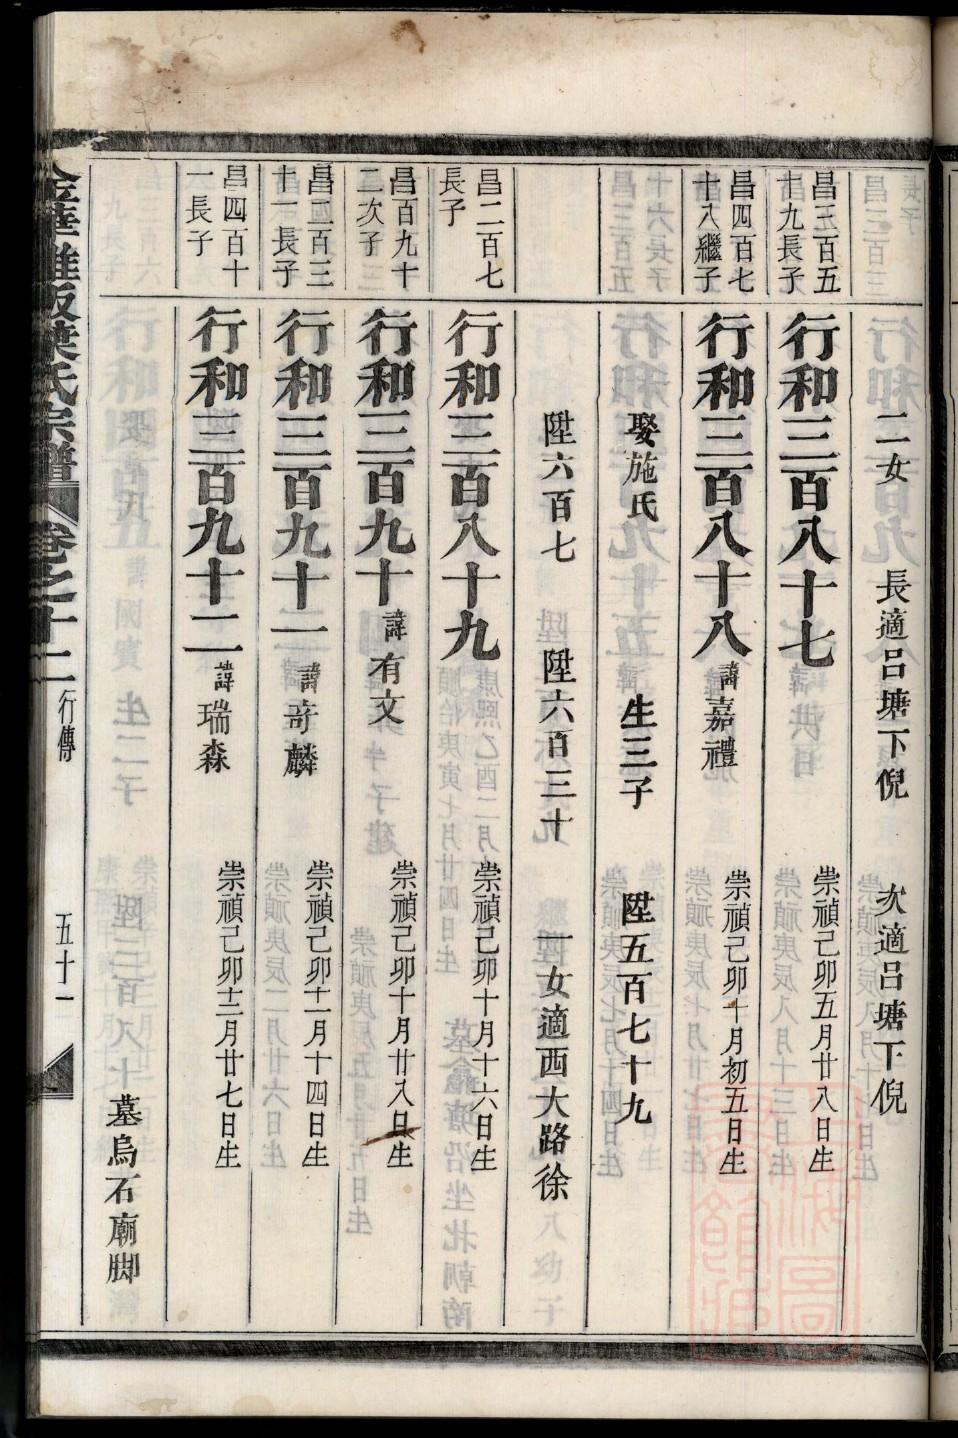 二女 長適呂塘下倪 次適呂塘下倪
昌三百五
十九長子
行和三百八十七
崇禎己卯五月廿八日生
昌四百七
十八繼子
行和三百八十八 諱嘉禮
崇禎己卯十月初五日生
娶施氏 生三子 陞五百七十九
陞六百七 陞六百三十 一女適西大路徐
昌二百七
長子
行和三百八十九
崇禎己卯十月十六日生
昌百九十
二次子
行和三百九十 諱有文
崇禎己卯十月廿八日生
昌二百三
十一長子
行和三百九十一 諱奇麟
崇禎己卯十一月十四日生
昌四百十
一長子
行和三百九十二 諱瑞森
崇禎己卯十二月廿七日生
墓烏石廟脚
葉氏宗譜 卷之十二 行傳 五十一